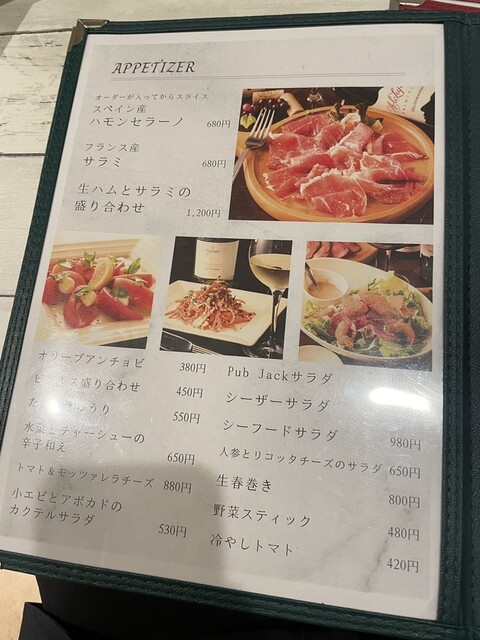 APPETIZER
オーダーが入ってからスライス
スペイン産
ハモンセラーノ 680円
フランス産
サラミ 680円
生ハムとサラミの
盛り合わせ 1,200円
オリーブアンチョビ 380円
盛り合わせ 450円
きゅうり 550円
水菜とチャーシューの
辛子和え 650円
トマト&モッツァレラチーズ 880円
小エビとアボカドの
カクテルサラダ 530円
Pub Jackサラダ
シーザーサラダ
シーフードサラダ 980円
人参とリコッタチーズのサラダ 650円
生春巻き 800円
野菜スティック 480円
冷やしトマト 420円